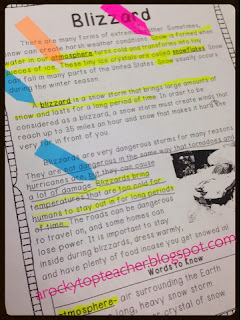 Blizzard
There are many forms of extreme weather. Sometimes,
snow can create harsh weather conditions. Snow is formed when
water in our atmosphere gets cold and transforms into tiny
pieces of ice. These tiny ice crystals are called snowflakes. Snow
can fall in many parts of the United States. Snow usually occurs
during the winter season.
A blizzard is a snow storm that brings large amounts of
snow and lasts for a long period of time. In order to be
considered a blizzard, a snow storm must create winds that
reach up to 35 miles an hour and snow that makes it hard
very far in front of you.
Blizzards are very dangerous storms for many reasons
They are not dangerous in the same way that tornadoes and
hurricanes are, but they can cause
a lot of damage. Blizzards bring
temperatures that are too cold for
humans to stay out in for long periods
of time. The roads can be dangerous
to travel on, and some homes can
lose power. It is important to stay
inside during blizzards, dress warmly,
and have plenty of food incase you get snowed in!
arockytopteacher.blogspot.com
Words to Know
atmosphere- air surrounding the Earth
long, heavy snow storm
crystal of snow